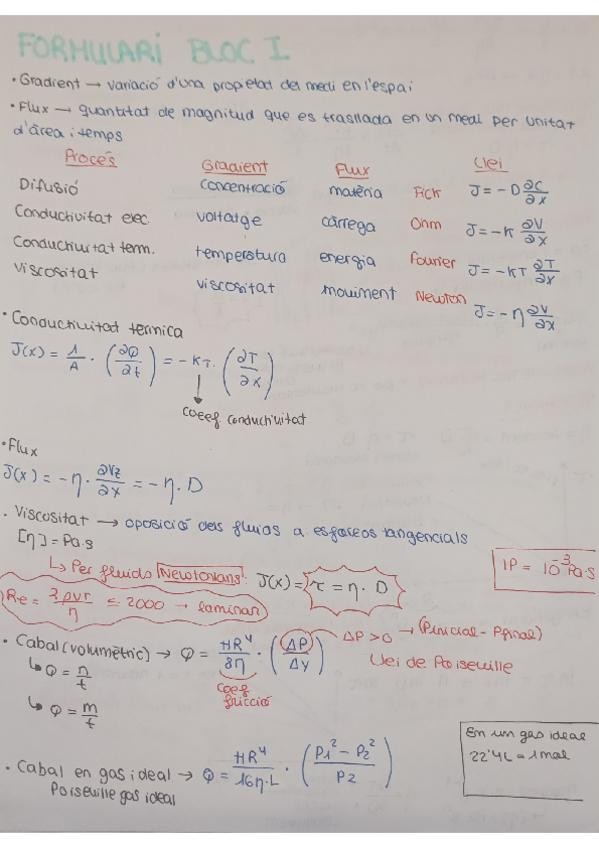 FORMULARI BLOC I
· Gradient → variació d'una propietat del medi en l'espai
· Flux → quantitat de magnitud que es trasllada en un medi per unitat
d'àrea i temps
Procés Gradient Flux Llei
Difusió concentració matèria Fick J = -D ∂C/∂x
Conductivitat elec. voltatge càrrega Ohm J = -K ∂V/∂x
Conductivitat term. temperatura energia Fourier J = -KT ∂T/∂x
Viscositat viscositat moviment Newton J = -η ∂V/∂x
· Conductivitat tèrmica
J(x) = 1/A · (∂Q/∂t) = -KT · (∂T/∂x)
coeef conductivitat
· Flux
J(x) = -η · ∂Vz/∂x = -η · D
· Viscositat → oposició dels fluids a esforços tangencials
[η] = Pa·s
↳ Per fluids Newtonians: J(x) = τ = η · D
1P = 10⁻³ Pa·s
Re = 2ρvr/η ≤ 2000 → laminar
· Cabal (volumètric) → Q = πR⁴/8η · (ΔP/Δy) ΔP>0 → (Pinicial - Pfinal)
↳ Q = n/t
coef fricció
Llei de Poiseuille
↳ Q = m/t
En un gas ideal
22'4L = 1mol
· Cabal en gas ideal → Q = πR⁴/16η·L · (P₁² - P₂²/P₂)
Poiseuille gas ideal